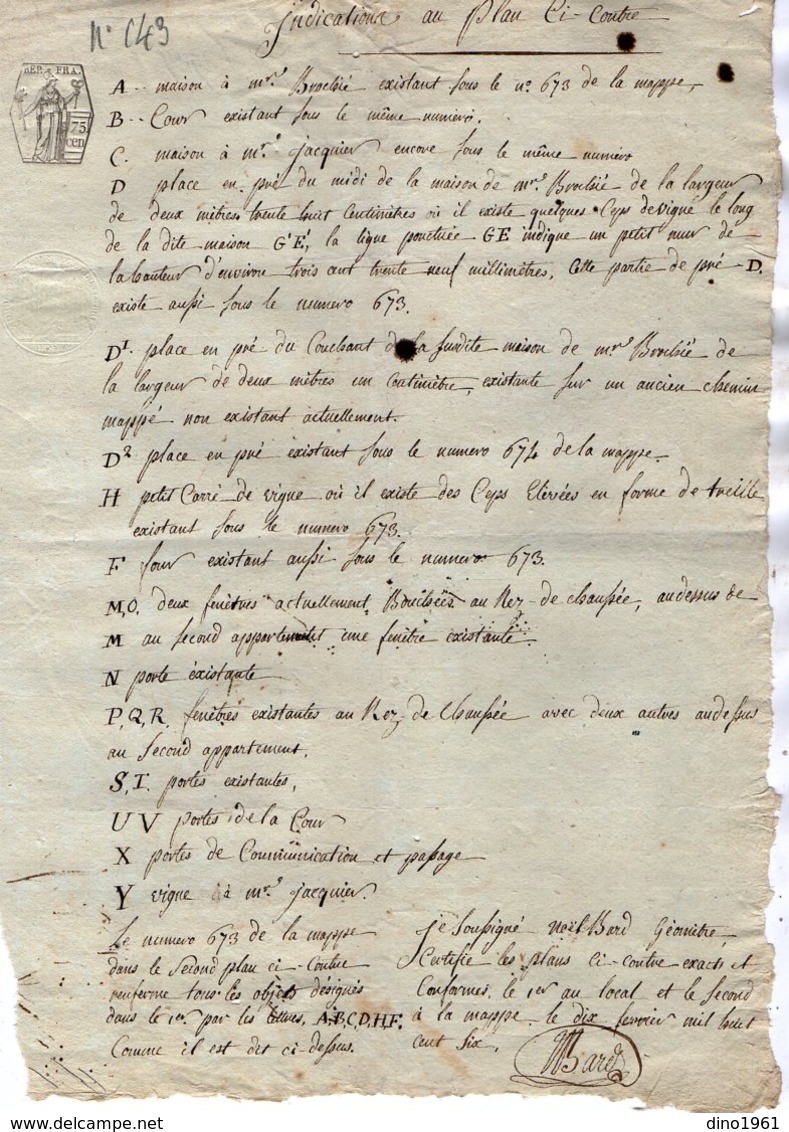 N° 143
Indications au Plan Ci-Contre
REP. FRA.
75
cen
A.. maison à mrs Brochié existant sous le no. 673 de la mappe,
B.. Cour existant sous le même numéro.
C. maison à mr. jacquier encore sous le même numéro
D place en pré du midi de la maison de mrs Brochié de la largeur
de deux mètres trente huit Centimètres où il existe quelques Ceps de vigne le long
de la dite maison G'E', la ligne ponctuée GE indique un petit mur de
la hauteur d'environ trois cent trente neuf millimètres, Cette partie de pré D.
existe aussi sous le numero 673.
D1. place en pré du Couchant de la susdite maison de mrs Brochié de
la largeur de deux mètres un centimètre, existante sur un ancien chemin
mappé non existant actuellement.
D2 place en pré existant sous le numero 674 de la mappe.
H petit Carré de vigne où il existe des Ceps Elevées en forme de treille
existant sous le numero 673.
F four existant aussi sous le numero 673.
M,O, deux fenêtres actuellement Bouchées au Rez-de chaussée, audessus de
M au second appartement une fenêtre existante.
N porte éxistante
P,Q,R, fenêtres existantes au Rez-de Chaussée avec deux autres audessus
au Second appartement,
S,T. portes existantes,
U V portes de la Cour
X portes de Communication et passage
Y vigne à mr. jacquier.
Le numero 673 de la mappe
dans le Second plan ci-Contre
renferme tous les objets désignés
dans le 1er par les lettres, A,B,C,D,H,F.
Comme il est dit ci-dessus.
Je Soussigné Noël Bard Géomètre,
Certifie les plans ci-contre exacts et
Conformes, le 1er au local et le second
à la mappe, le dix fevrier mil huit
cent six,
NBard
dino1961